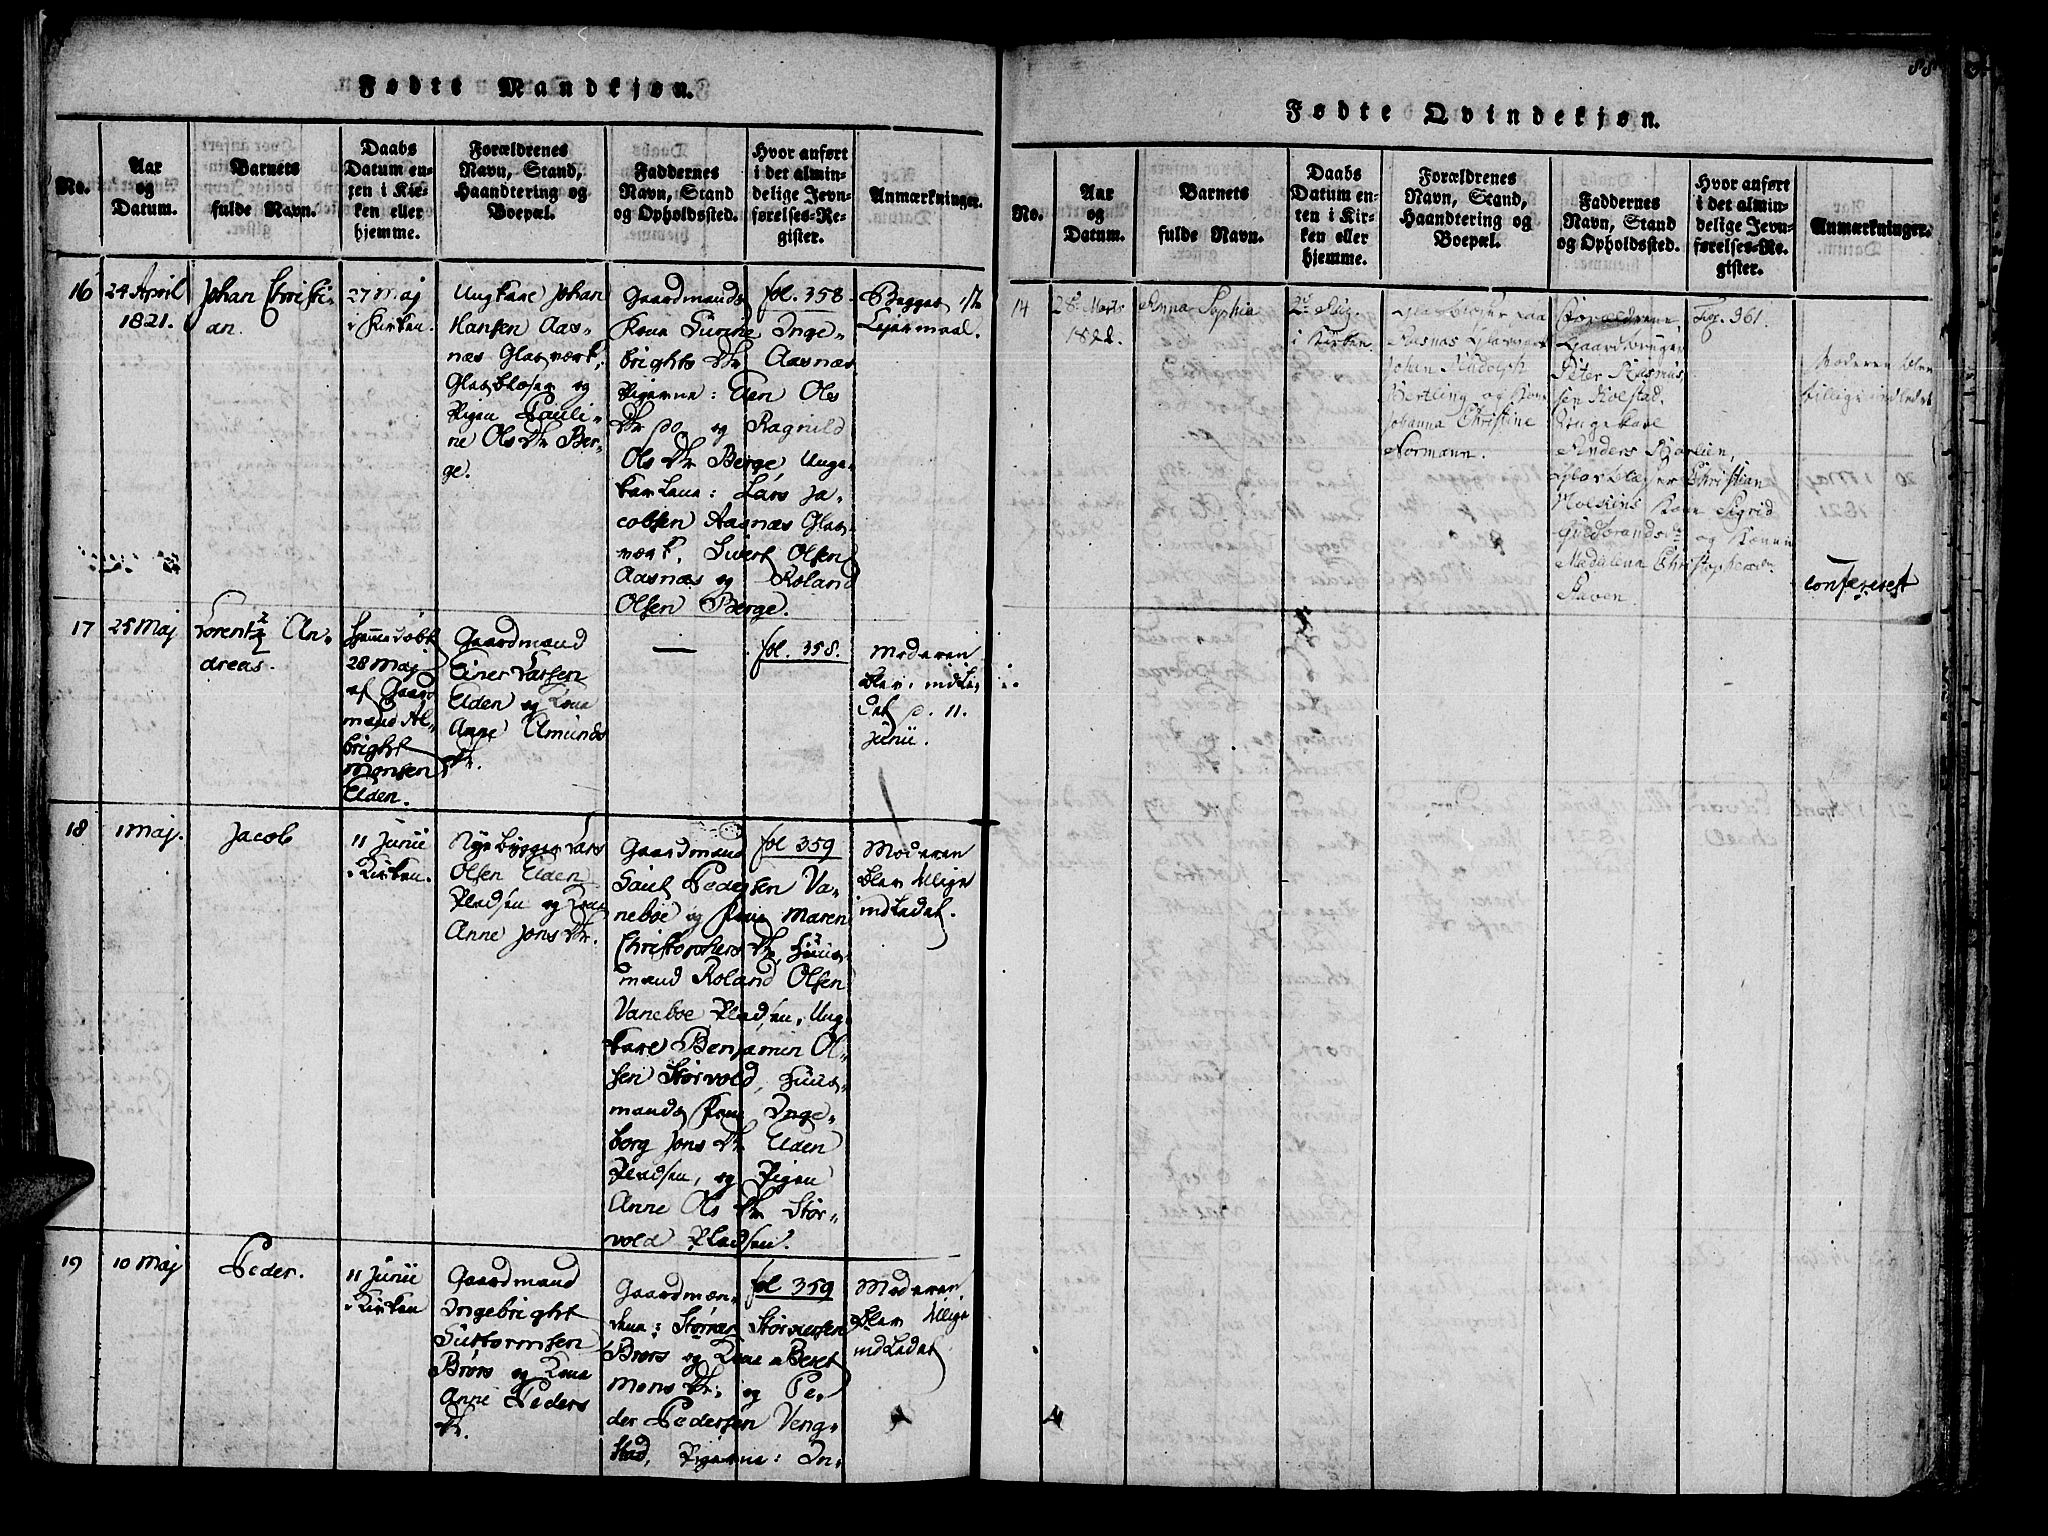 Fødte Mandkjøn.
No.
Aar
og
Datum.
Barnets
fulde Navn.
Daabs
Datum en-
ten i Kir-
ken eller
hjemme.
Forældrenes
Navn, Stand,
Haandtering og
Boepæl.
Faddernes
Navn, Stand
og Opholdssted.
Hvor anført
i det almin-
delige Jevn-
førelses-Re-
gister.
Anmærkninger.
16
24 April
1821.
Johan Christi-
an.
27 Maj
i Kirken.
Ungkare Johan
Hansen Aas-
næs Glasværk,
Glasblæser og
Pigen Pauli-
ne Ols Dr Ber-
ge.
Gaardmands
Kone Surine Inge-
brights Dr Aasnæs
Pigerne: Ane Ols
Dr og Ragnild
Ols Dr Berge Unge-
karlene: Lars Ja-
cobsen Aasnæs Glas-
værk, Sivert Olsen
Aasnæs og Roland
Olsen Berge.
fol. 358.
Begges 1ste
Lejermaal.
17
25 Maj
Lorentz An-
dreas.
Hjemmedøbt
28 Maj
af Gaard
mand Al-
bright
Monsen
Elden.
Gaardmand
Einer Larsen
Elden og Kone
Anne Amunds
Dr.
—
fol. 358.
Moderen
blev indle-
det d. 11.
Junii.
18
1 Maj.
Jacob
11 Junii
i Kirken.
Nyebygger Lars
Olsen Elden
Pladsen og Kone
Anne Jons Dr.
Gaardmand
Saul Pedersen Va-
neboe og Kone Maren
Christophers Dr, Huus-
mand Roland Olsen
Vaneboe Pladsen, Ung-
kare Benjamin Ol-
sen Storvold, Huus-
mands Kone Inge-
borg Jons Dr Elden
Pladsen, og Pigen
Anne Ols Dr Stor-
vold Pladsen.
fol 359
Moderen
blev tillige
indledet.
19
10 Maj
Peder.
11 Junii
i Kirken
Gaardmand
Ingebright
Guttormsen
Brørs og Kone
Anne Peders
Dr.
Gaardmæn-
dene: Størner Størnersen
Brørs og Kone Beret
Mons Dr: og Pe-
der Pedersen Veng-
stad, Pigerne: In-
fol 359
Moderen
blev tillige
indledet
88
Fødte Qvindekjøn.
No.
Aar
og
Datum.
Barnets
fulde Navn.
Daabs
Datum en-
ten i Kir-
ken eller
hjemme.
Forældrenes
Navn, Stand,
Haandtering og
Boepæl.
Faddernes
Navn, Stand
og Opholdssted.
Hvor anført
i det almin-
delige Jevn-
førelses-Re-
gister.
Anmærkninger.
14
28 Marts
1822.
Anna Sophia
2d Aug.
i Kirken.
Glasblæser paa
Aasnæs Glasværk
Johan Rudolph
Hertling og Kone
Johanna Christine
Normann.
Forældrene,
Gaardbruger
Peter Rasmus-
sen Kolstad.
Ungekarl
Anders Kjørlien,
Glasblæser Christian
Kone Sigrid
Gudbrandsdr og Konen
Madalena Christophersdr
Staven.
Fog. 361.
Moderen blev
tillige indledet
confereret